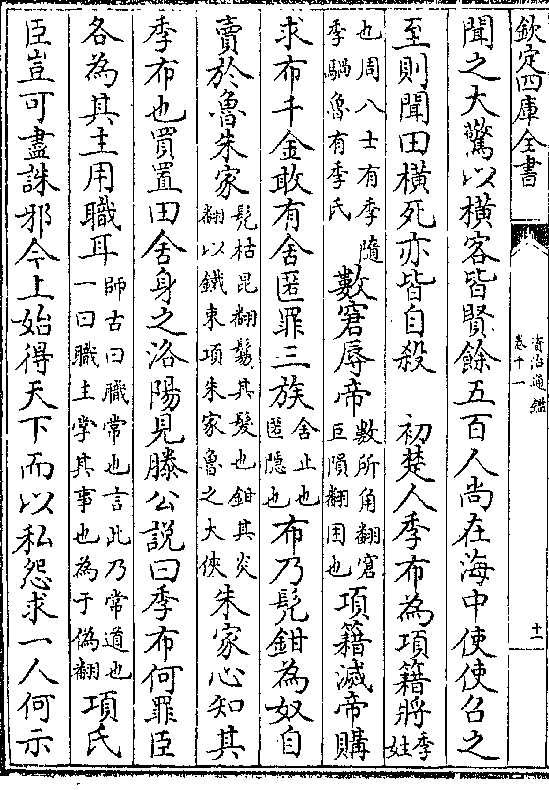 欽定四庫全書
資治通鑑
卷十一
十一
聞之大驚以橫客皆賢餘五百人尚在海中使使召之
至則聞田橫死亦皆自殺　初楚人季布為項籍將季姓
也周八士有季隨季騧魯有季氏數窘辱帝數所角翻窘巨隕翻困也項籍滅帝購
求布千金敢有舍匿罪三族舍止也匿隱也布乃髡鉗為奴自
賣於魯朱家髡枯昆翻鬄其髮也鉗其炎翻以鐵束項朱家魯之大俠朱家心知其
季布也買置田舍身之洛陽見滕公說曰季布何罪臣
各為其主用職耳師古曰職常也言此乃常道也一曰職主掌其事也為于偽翻項氏
臣豈可盡誅邪今上始得天下而以私怨求一人何示